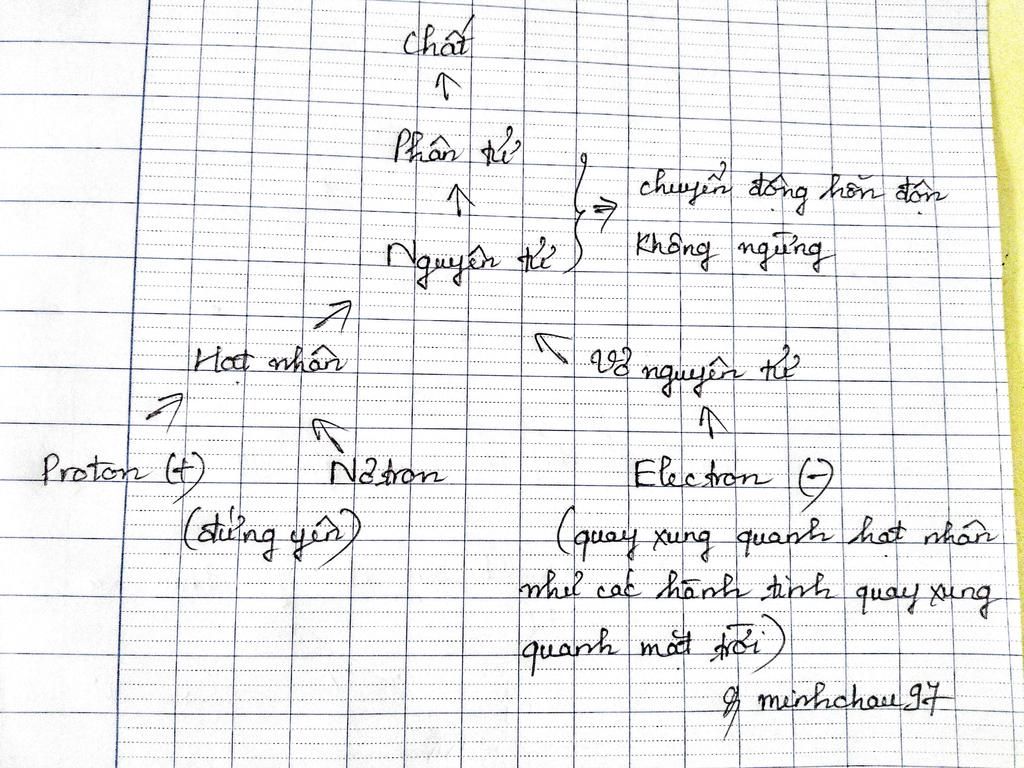 Chất
↑
Phân tử
↑
Nguyên tử } ⇒ chuyển động hỗn độn
không ngừng
Hạt nhân
Vỏ nguyên tử
Proton (+)
Nơtron
Electron (-)
(đứng yên)
(quay xung quanh hạt nhân
như các hành tinh quay xung
quanh mặt trời)
minhchau97